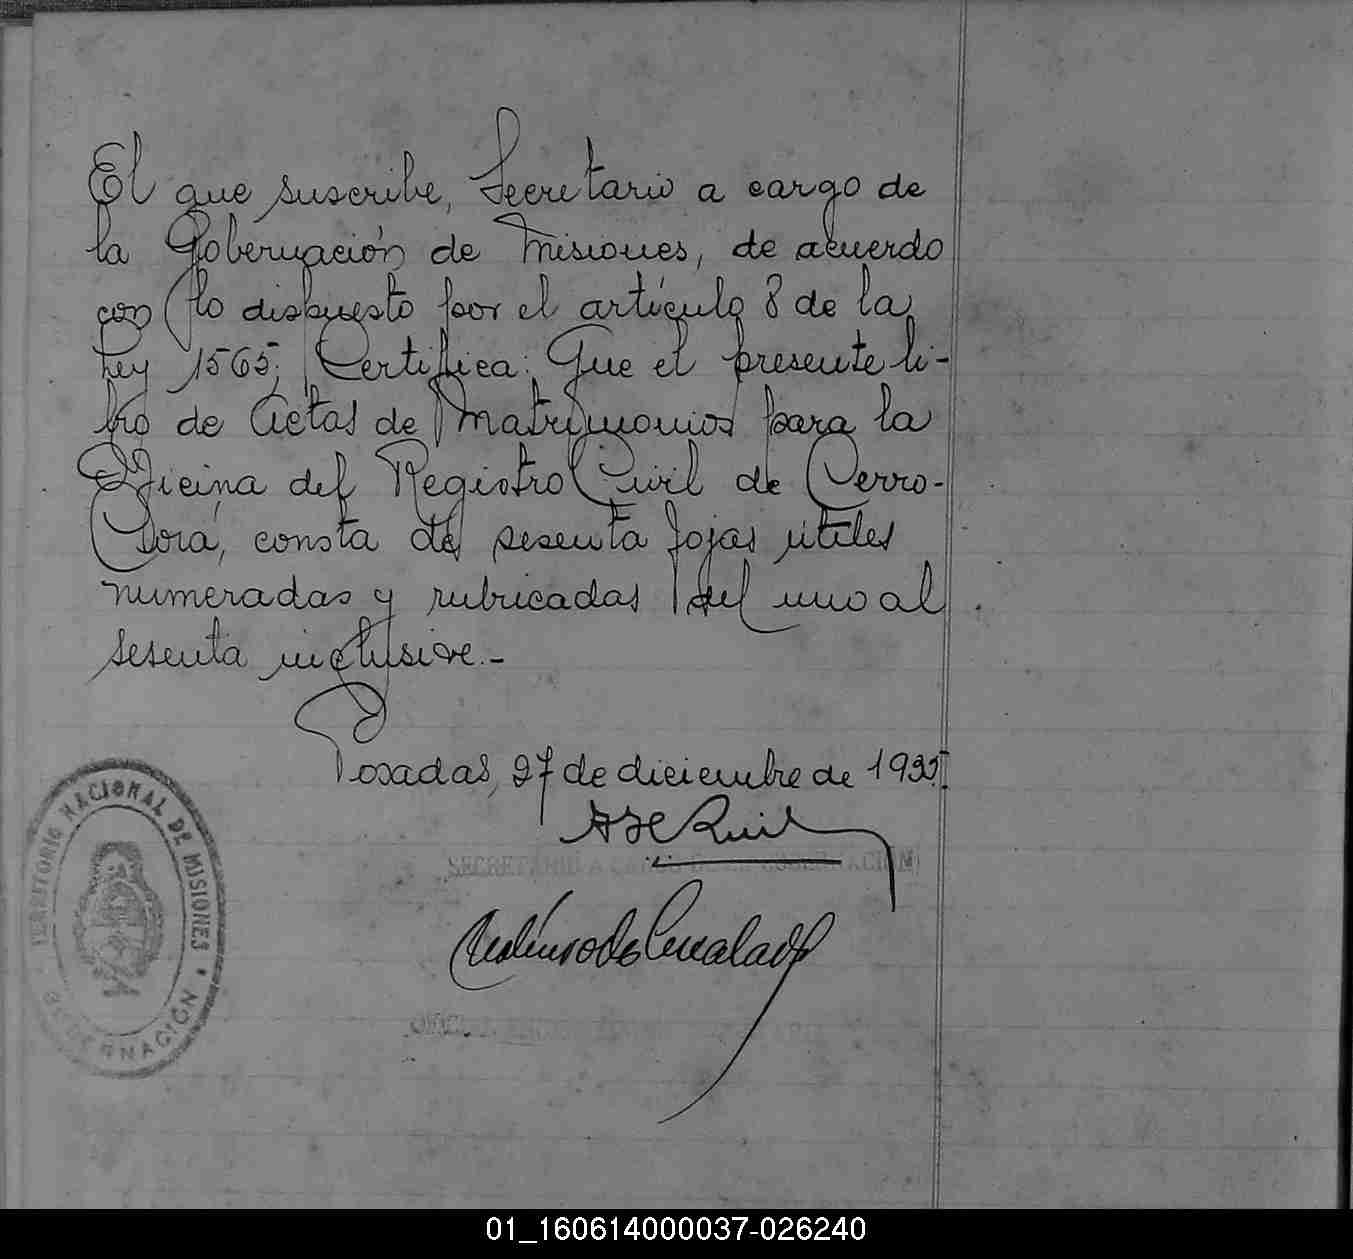 El que suscribe, Secretario a cargo de
la Gobernación de Misiones, de acuerdo
con lo dispuesto por el artículo 8 de la
Ley 1565; Certifica: Que el presente li-
bro de Actas de Matrimonios para la
Oficina del Registro Civil de Cerro-
Corá, consta de sesenta fojas útiles
numeradas y rubricadas del uno al
sesenta inclusive.-
Posadas, 27 de diciembre de
SECRETARIO A CARGO DE LA GOBERNACION
TERRITORIO NACIONAL DE MISIONES
GOBERNACIÓN
01_160614000037-026240